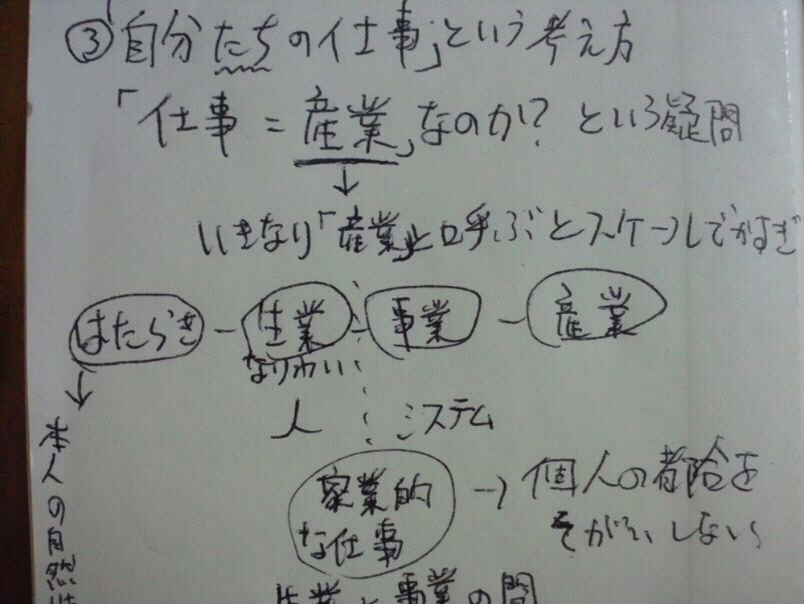 ③「自分たちの仕事」という考え方
「仕事＝産業」なのか!?という疑問
↓
いきなり「産業」と呼ぶとスケールでかすぎ
はたらき－生業－事業－産業
なりわい
↓
人 システム
家業的な仕事
→個人の都合を
そがいしない
本人の自然
生業と事業の間